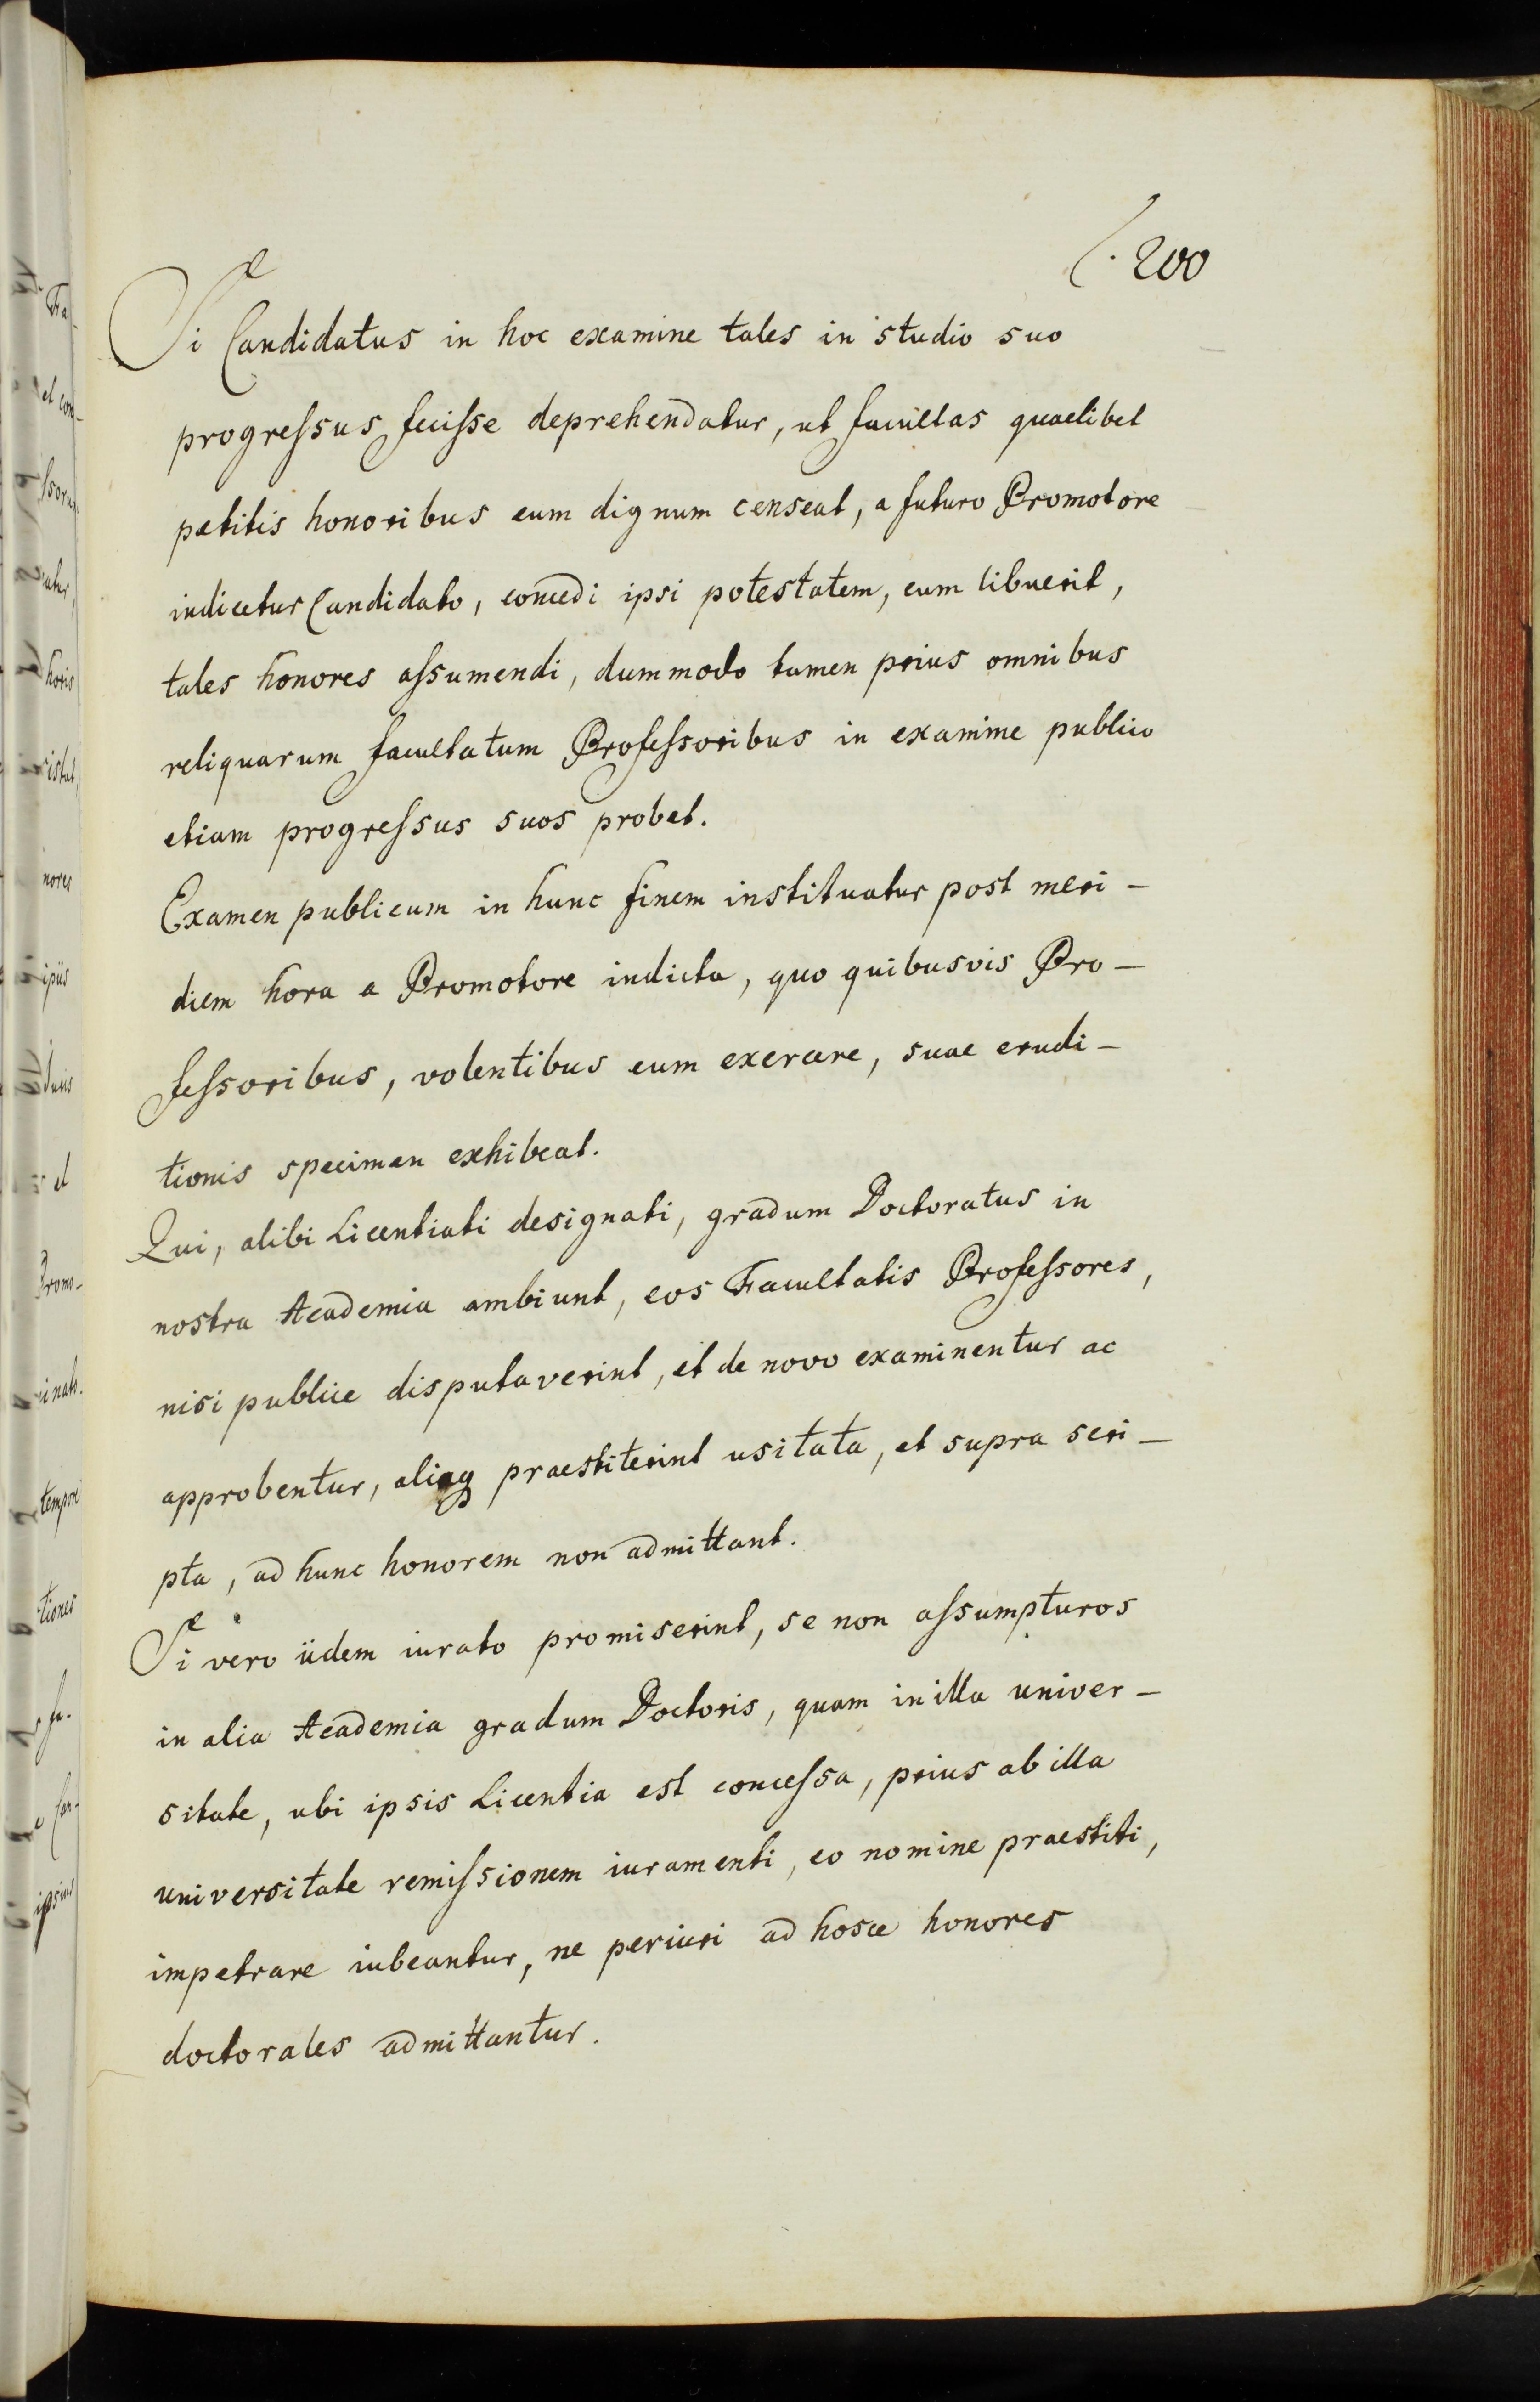 200
Si Candidatus in hoc examine tales in studio suo
progreſsus feciſse deprehendatur, ut facultas quaelibet
petitis honoribus eum dignum censeat, a futuro Promotore
indicetur Candidato, concedi ipsi potestatem, cum libuerit,
tales honores aſsumendi, dummodo tamen prius omnibus
reliquarum facultatum Profeſsoribus in examine publico
etiam progreſsus suos probet.
Examen publicum in hunc finem instituatur post meri-
diem hora a Promotore indicta, quo quibusvis Pro-
feſsoribus, volentibus eum exercere, suae erudi-
tionis specimen exhibeat.
Qui, alibi Licentiati designati, gradum Doctoratus in
nostra Academia ambiunt, eos Facultatis Profeſsores,
nisi publice disputaverint, et de novo examinentur ac
approbentur, aliaq praestiterint usitata, et supra scri-
pta, ad hunc honorem non admittant.
Si vero iidem iurato promiserint, se non aſsumpturos
in alia Academia gradum Doctoris, quam in illa univer-
sitate, ubi ipsis Licentia est conceſsa, prius ab illa
universitate remiſsionem iuramenti, eo nomine praestiti,
impetrare iubeantur, ne periuri ad hosce honores
doctorales admittantur.